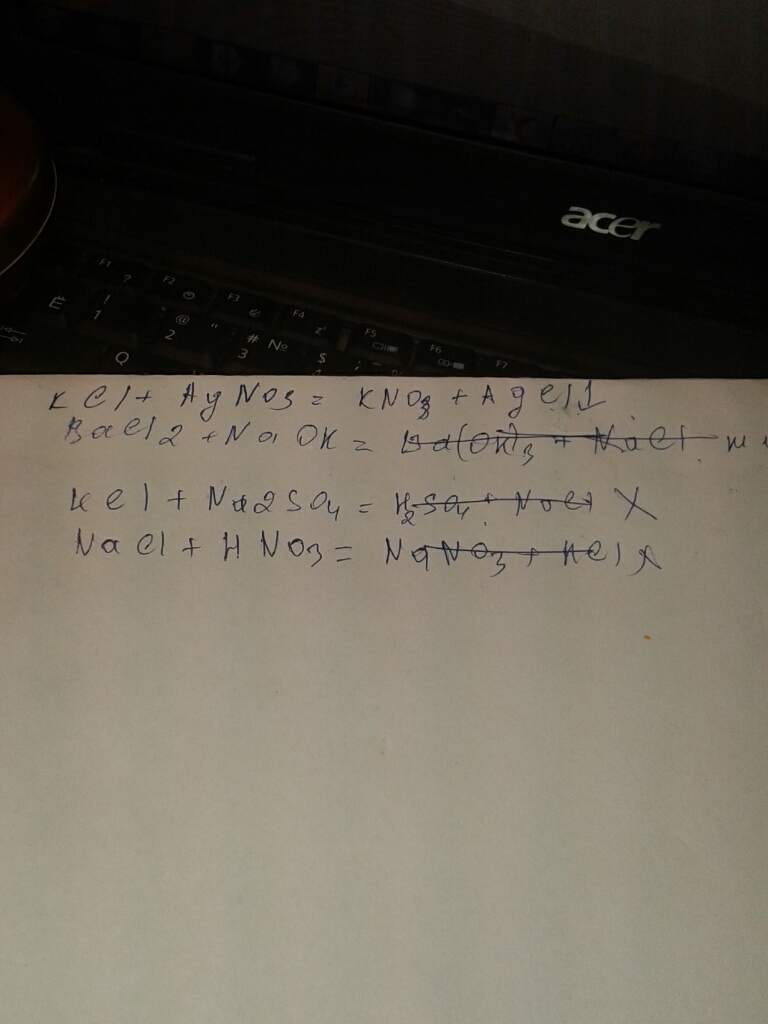 acer
F1 F2 F3 F4 F5 F6 F7
Ё ! 1 ? @ 2 " # 3 № $ ; :
Q
KCl + AgNO3 = KNO3 + AgCl↓
BaCl2 + NaOH = Ba(OH)3 + NaCl
KCl + Na2SO4 = H2SO4 + NaCl X
NaCl + HNO3 = NaNO3 + HCl X